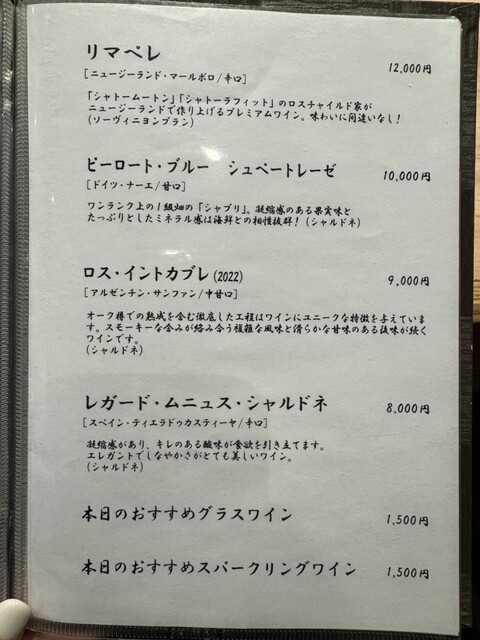 リマペレ
12,000円
[ニュージーランド・マールボロ/辛口]
「シャトームートン」「シャトーラフィット」のロスチャイルド家が
ニュージーランドで作り上げるプレミアムワイン。味わいに間違いなし!
(ソーヴィニヨンブラン)
ピーロート・ブルー シュペートレーゼ
10,000円
[ドイツ・ナーエ/甘口]
ワンランク上の1級畑の「シャブリ」。凝縮感のある果実味と
たっぷりとしたミネラル感は海鮮との相性抜群! (シャルドネ)
ロス・イントカブレ(2022)
9,000円
[アルゼンチン・サンファン/中甘口]
オーク樽での熟成を含む徹底した工程はワインにユニークな特徴を与えていま
す。スモーキーな含みが絡み合う複雑な風味と滑らかな甘味のある後味が続く
ワインです。
(シャルドネ)
レガード・ムニュス・シャルドネ
8,000円
[スペイン・ティエラドゥカスティーヤ/辛口]
凝縮感があり、キレのある酸味が食欲を引き立てます。
エレガントでしなやかさがとても美しいワイン。
(シャルドネ)
本日のおすすめグラスワイン
1,500円
本日のおすすめスパークリングワイン
1,500円